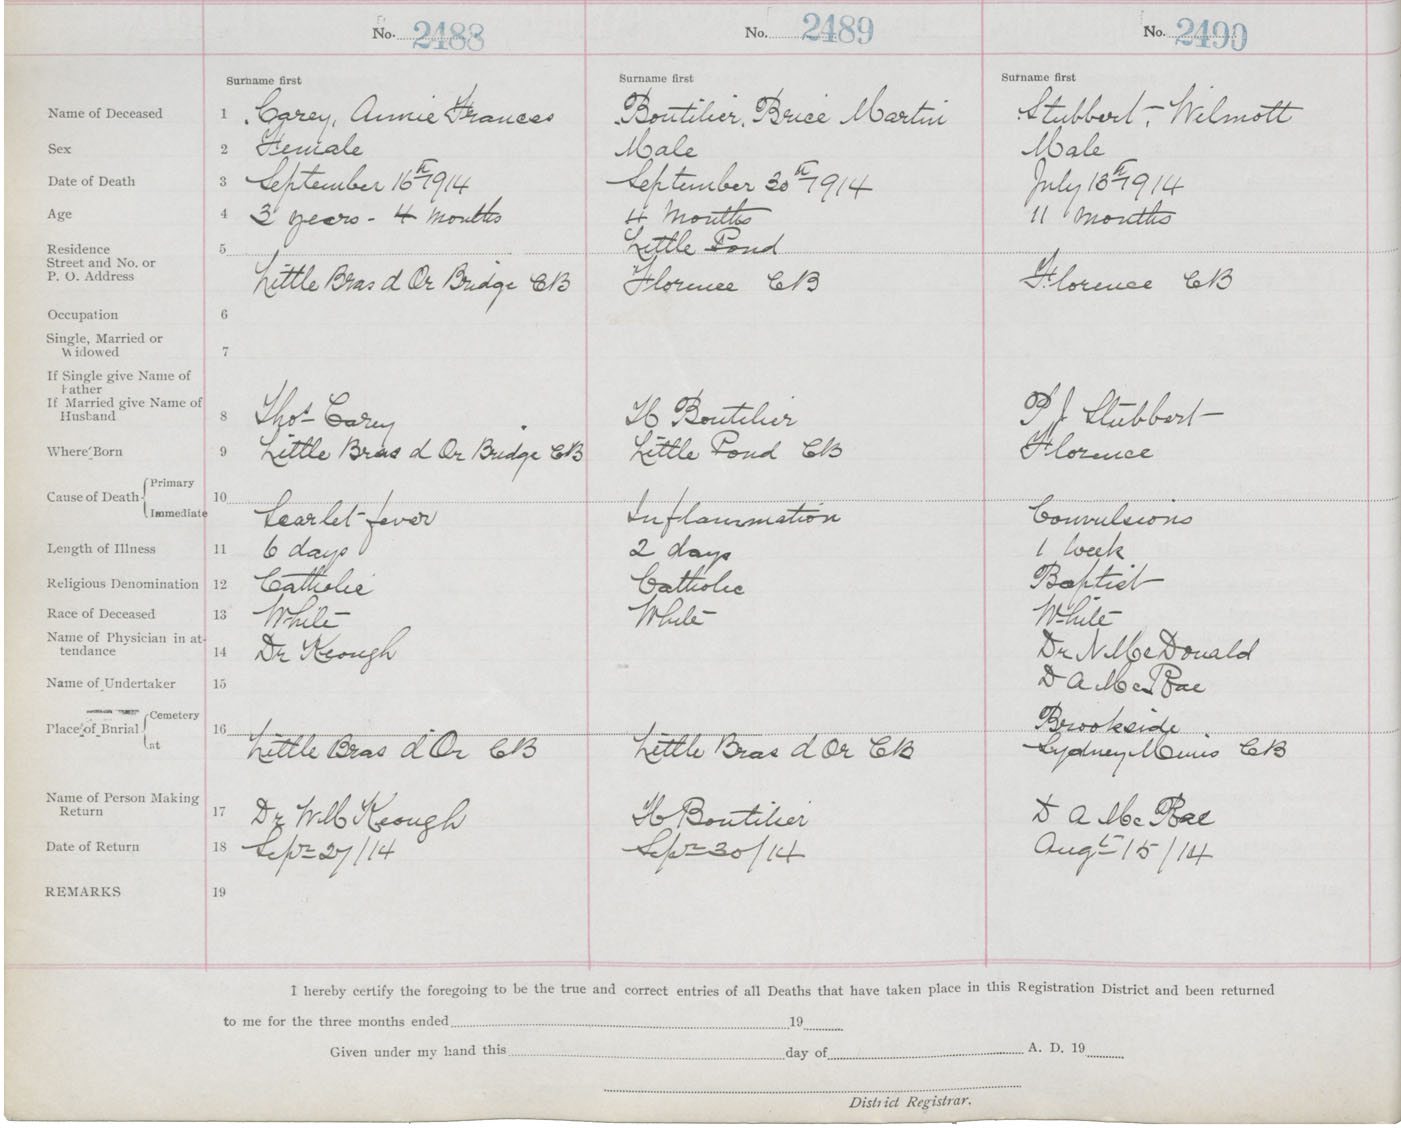 No. 2488 No. 2489 No. 2490
Surname first Surname first Surname first
Name of Deceased 1 Carey, Annie Frances Boutilier, Brice Martin Stubbert, Wilmott
Sex 2 Female Male Male
Date of Death 3 September 16th 1914 September 30th 1914 July 13th 1914
Age 4 3 years - 4 months 4 Months 11 months
Residence 5 Little Pond
Street and No. or
P. O. Address Little Bras d Or Bridge CB Florence CB Florence CB
Occupation 6
Single, Married or
Widowed 7
If Single give Name of
Father
If Married give Name of
Husband 8 Thos Carey H Boutilier P J Stubbert
Where Born 9 Little Bras d Or Bridge CB Little Pond CB Florence
Primary
Cause of Death 10
Immediate Scarlet fever Inflammation Convulsions
Length of Illness 11 6 days 2 days 1 week
Religious Denomination 12 Catholic Catholic Baptist
Race of Deceased 13 White White White
Name of Physician in at-
tendance 14 Dr Keough Dr N McDonald
Name of Undertaker 15 D A McRae
Cemetery Brookside
Place of Burial 16
at Little Bras d'Or CB Little Bras d Or CB Sydney Mines CB
Name of Person Making
Return 17 Dr W M Keough H Boutilier D A McRae
Date of Return 18 Sepr 27/14 Sepr 30/14 Augt 15/14
REMARKS 19
I hereby certify the foregoing to be the true and correct entries of all Deaths that have taken place in this Registration District and been returned
to me for the three months ended 19
Given under my hand this day of A. D. 19
District Registrar.